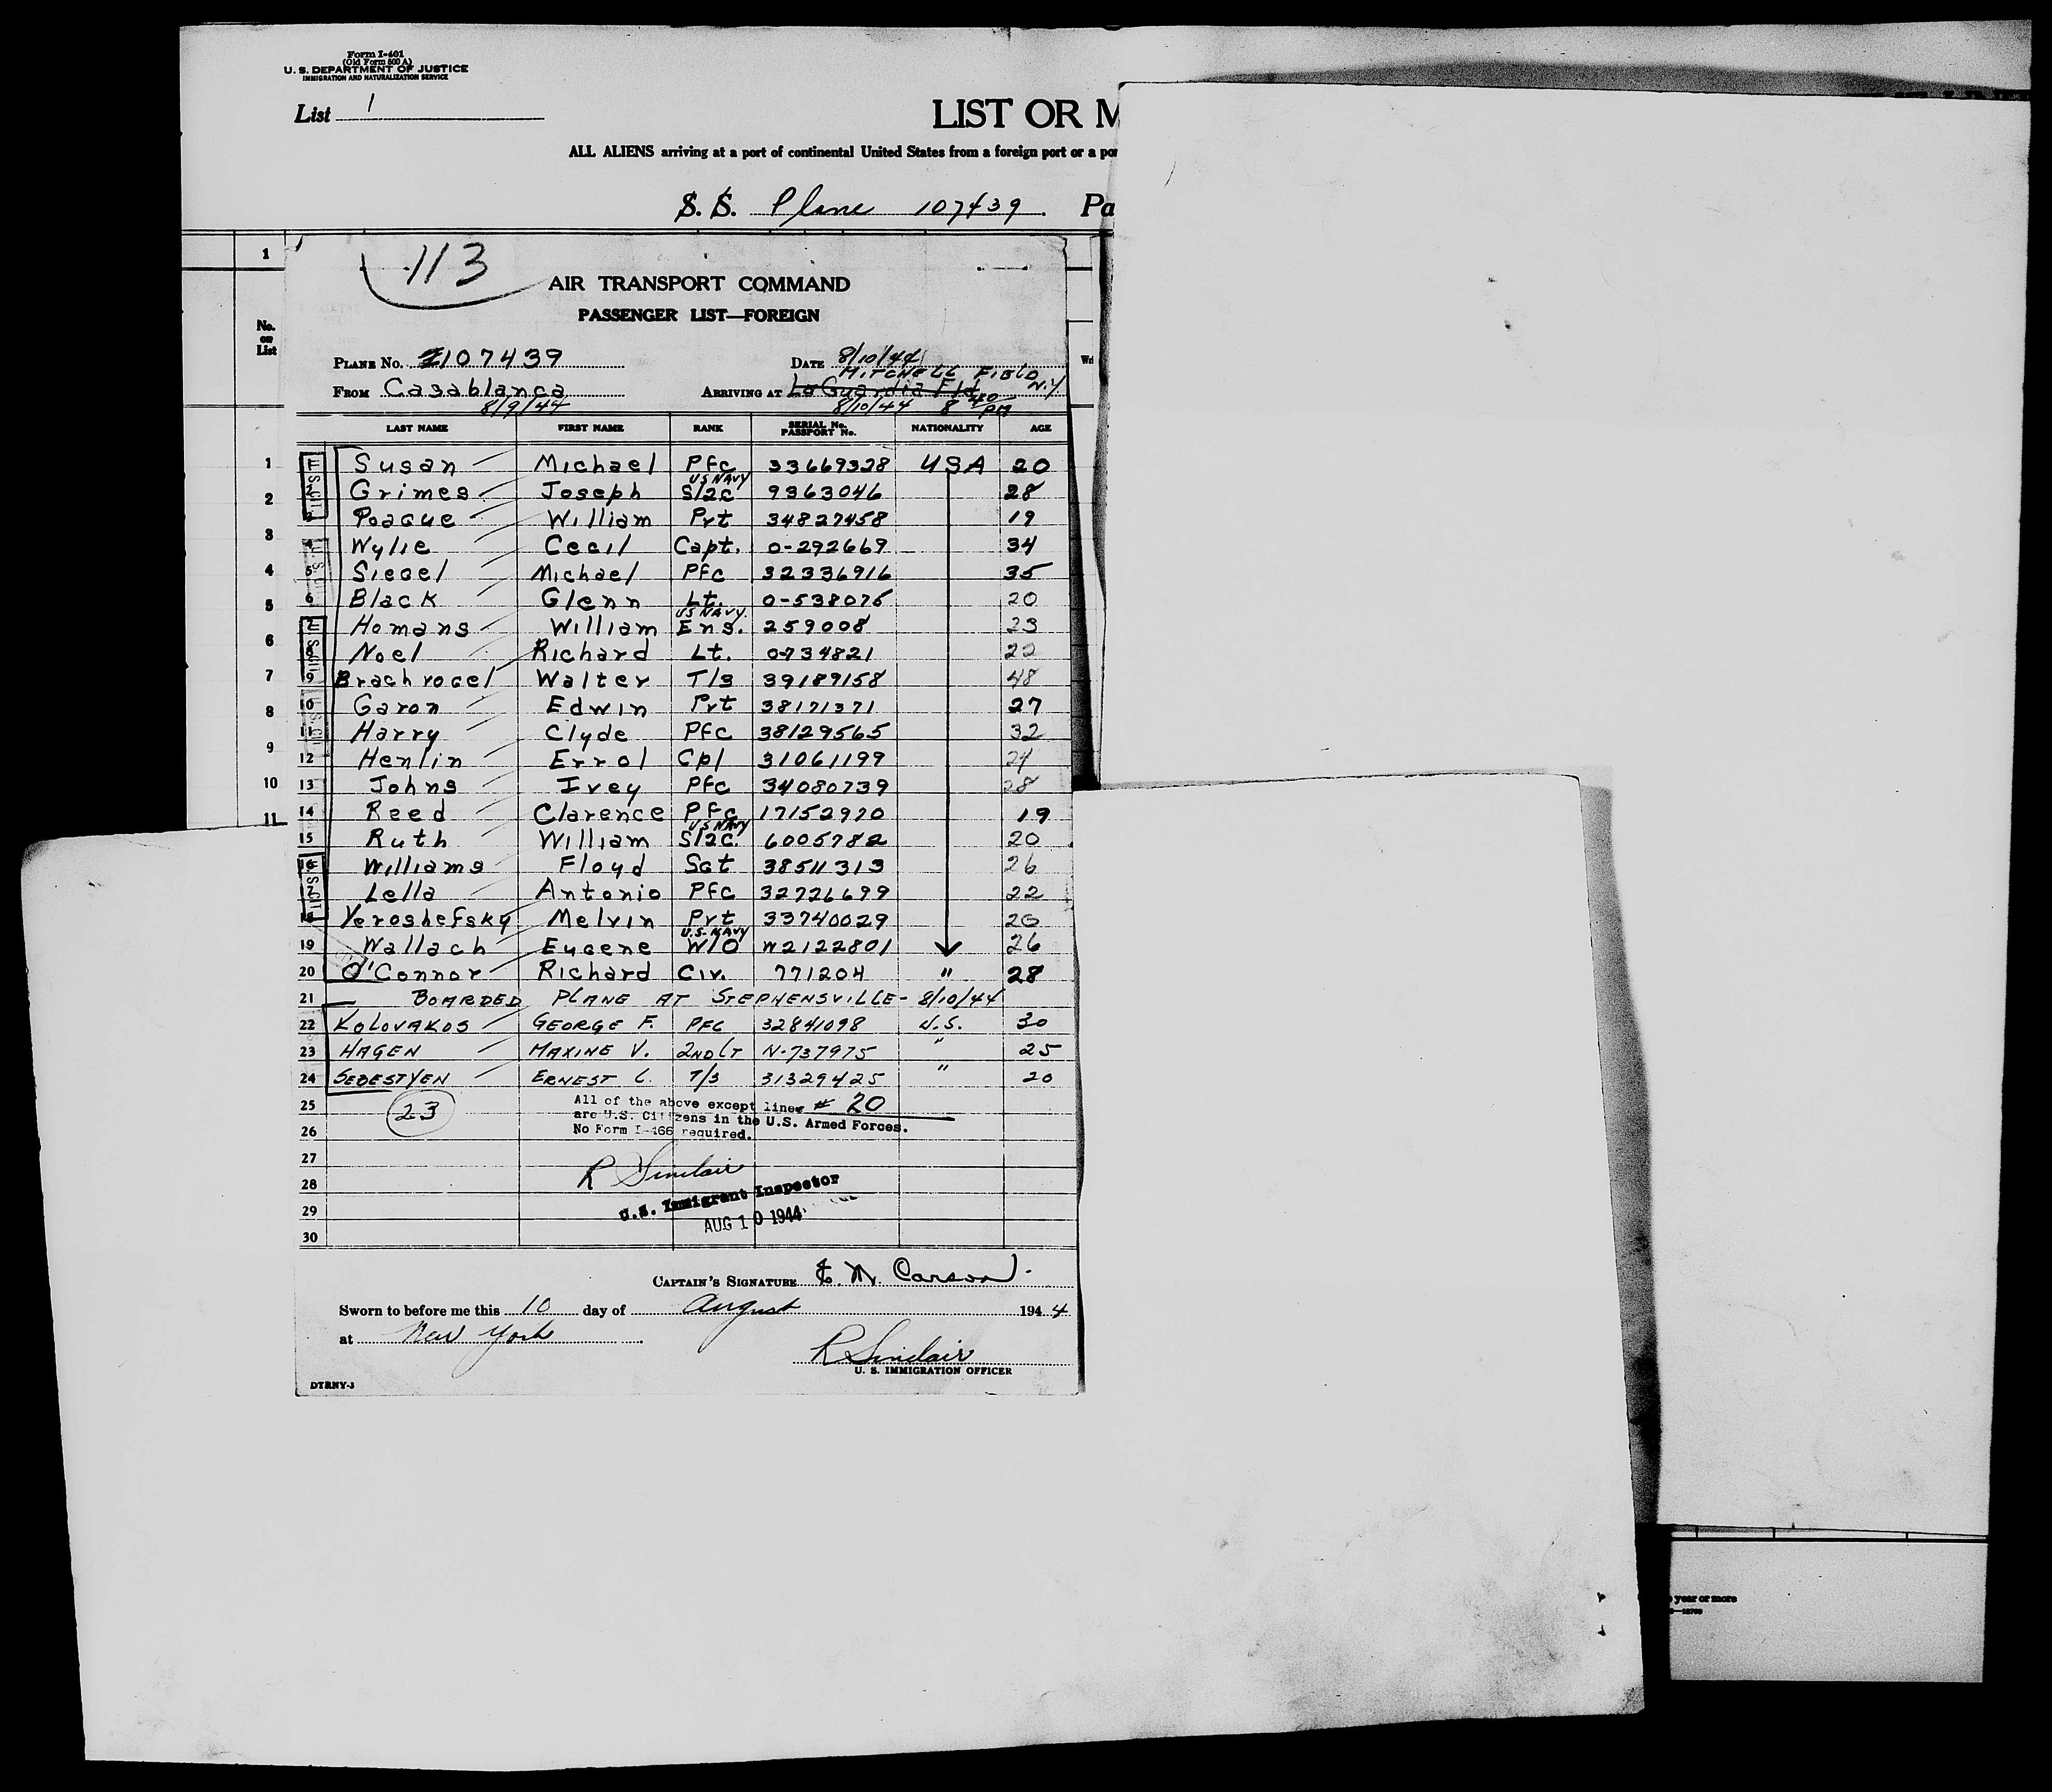 Form I-401
(Old Form 500 A)
U. S. DEPARTMENT OF JUSTICE
IMMIGRATION AND NATURALIZATION SERVICE
List 1
LIST OR M
ALL ALIENS arriving at a port of continental United States from a foreign port or a por
S. S. Plane 107439. Pa
1
113
AIR TRANSPORT COMMAND
PASSENGER LIST—FOREIGN
No. on List
PLANE No. 107439 DATE 8/10/44
MITCHELL FIELD N.Y
FROM Casablanca ARRIVING AT LaGuardia Fld
8/9/44 8/10/44 8 40/PM
LAST NAME FIRST NAME RANK SERIAL No. PASSPORT No. NATIONALITY AGE
1 Susan Michael Pfc 33669328 USA 20
2 Grimes Joseph US NAVY S/2c 9363046 28
3 Poague William Pvt 34827458 19
4 Wylie Cecil Capt. 0-292669 34
5 Siegel Michael Pfc 32336916 35
6 Black Glenn Lt. 0-538075 20
7 Homans William US NAVY Ens. 259008 23
8 Noel Richard Lt. 0734821 22
9 Brachvogel Walter T/3 39189158 48
10 Garon Edwin Pvt 38171371 27
11 Harry Clyde Pfc 38129565 32
12 Henlin Errol Cpl 31061199 24
13 Johns Ivey Pfc 34080739 28
14 Reed Clarence Pfc 17152970 19
15 Ruth William US NAVY S/2c. 6005782 20
16 Williams Floyd Sgt 38511313 26
17 Lella Antonio Pfc 32726699 22
18 Yeroshefsky Melvin Pvt 33740029 20
19 Wallach Eugene U.S. NAVY W/O W2122801 26
20 O'Connor Richard Civ. 771204 " 28
21 — BOARDED PLANE AT STEPHENSVILLE - 8/10/44
22 KOLOVAKOS GEORGE F. PFC 32841098 U.S. 30
23 HAGEN MAXINE V. 2ND LT N-737975 " 25
24 SEDESTYEN ERNEST C. T/3 31329425 " 20
25 23 All of the above except lines # 20
are U.S. Citizens in the U.S. Armed Forces.
26 No Form I-466 required.
27
28 R Sinclair
29 U.S. Immigrant Inspector
AUG 10 1944
30
CAPTAIN'S SIGNATURE E. W. Carson
Sworn to before me this 10 day of August 1944
at New York
R Sinclair
U. S. IMMIGRATION OFFICER
DTRNY-3
1
2
3
4
5
6
7
8
9
10
11
year or more